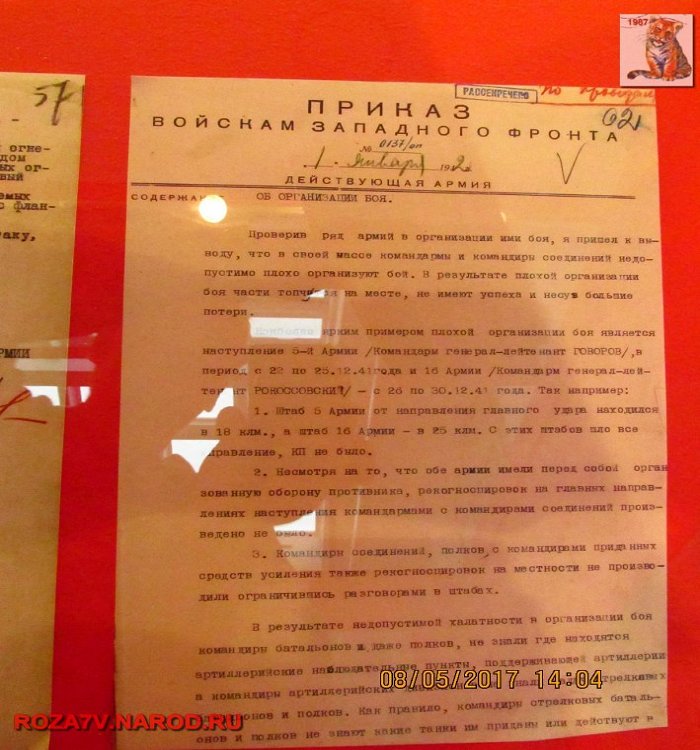 57
-
й огне-
дом
ых ог-
вый
аемых
с флан-
таку,
АРМИИ
1987
РАССЕКРЕЧЕНО
по проводам
ПРИКАЗ
ВОЙСКАМ ЗАПАДНОГО ФРОНТА
62
№ 0137/оп
1 января 1942
ДЕЙСТВУЮЩАЯ АРМИЯ
СОДЕРЖАН ОБ ОРГАНИЗАЦИИ БОЯ.
Проверив ряд армий в организации ими боя, я пришел к вы-
воду, что в своей массе командармы и командиры соединений недо-
пустимо плохо организуют бой. В результате плохой организации
боя части топчутся на месте, не имеют успеха и несут большие
потери.
Наиболее ярким примером плохой организации боя является
наступление 5-й Армии /Командарм генерал-лейтенант ГОВОРОВ/, в
период с 22 по 25.12.41 года и 16 Армии /Командарм генерал-лей-
тенант РОКОССОВСКИЙ/ - с 26 по 30.12.41 года. Так например:
1. Штаб 5 Армии от направления главного удара находился
в 18 клм., а штаб 16 Армии - в 25 клм. С этих штабов шло все
управление, КП не было.
2. Несмотря на то, что обе армии имели перед собой орган
зованную оборону противника, рекогносцировок на главных направ-
лениях наступления командармами с командирами соединений произ-
ведено не было.
3. Командиры соединений, полков с командирами приданных
средств усиления также рекогносцировок на местности не произво-
дили ограничившись разговорами в штабах.
В результате недопустимой халатности в организации боя
командиры батальонов и даже полков, не знали где находятся
артиллерийские наблюдательные пункты, поддерживающей артиллерии
а командиры артиллерийских стрелковых
онов и полков. Как правило, командиры стрелковых баталь-
онов и полков не знают какие танки им приданы или действуют в
08/05/2017 14:04
ROZA7V.NAROD.RU